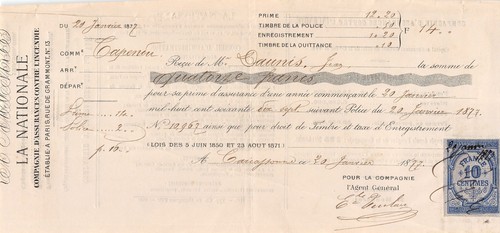 LA NATIONALE
COMPAGNIE D'ASSURANCES CONTRE L'INCENDIE
ÉTABLIE A PARIS, RUE DE GRAMMONT, No 13
DU 20 Janvier 1877
COMMe Capendu
ARRt
DÉPARt
2
p. 16
PRIME 12.20
TIMBRE DE LA POLICE
ENREGISTREMENT 1.20
TIMBRE DE LA QUITTANCE .10
F 14
Reçu de M. la somme de
Quatorze francs
pour sa prime d'assurance d'une année commençant le 20 Janvier
mil-huit cent soixante dix sept suivant Police du 20 Janvier 1877.
No 10967 ainsi que pour droit de Timbre et taxe d'Enregistrement
(LOIS DES 5 JUIN 1850 ET 23 AOUT 1871)
A Carcassonne le 20 Janvier 1877
POUR LA COMPAGNIE
l'Agent Général
FRANCE
10
CENTIMES